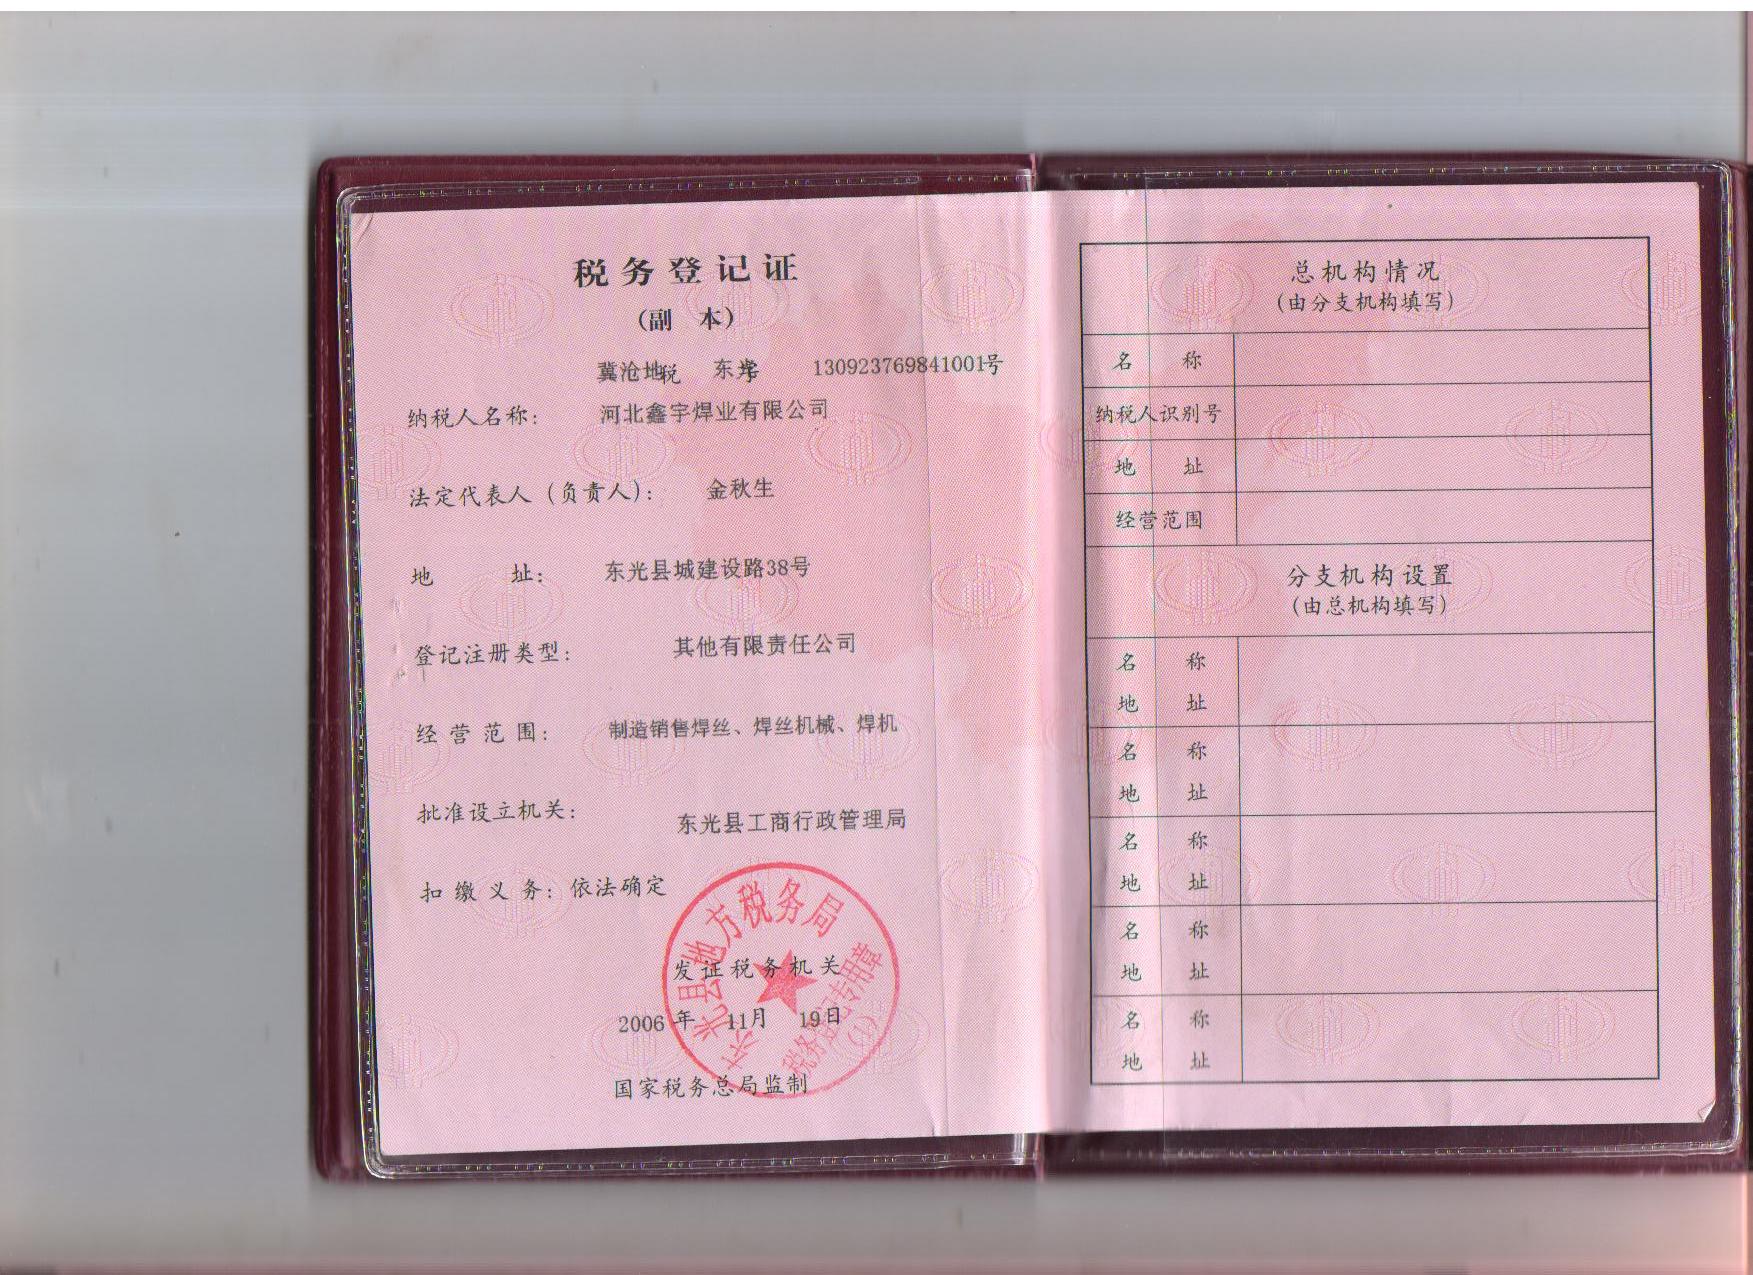 税务登记证
(副 本)
冀沧地税 东光字 130923769841001号
纳税人名称: 河北鑫宇焊业有限公司
法定代表人(负责人): 金秋生
地 址: 东光县城建设路38号
登记注册类型: 其他有限责任公司
经营范围: 制造销售焊丝、焊丝机械、焊机
批准设立机关: 东光县工商行政管理局
扣缴义务: 依法确定
发证税务机关
2006年 11月 19日
国家税务总局监制
县地方税务局
税务登记专用章
(1)
总机构情况
(由分支机构填写)
名 称
纳税人识别号
地 址
经营范围
分支机构设置
(由总机构填写)
名 称
地 址
名 称
地 址
名 称
地 址
名 称
地 址
名 称
地 址